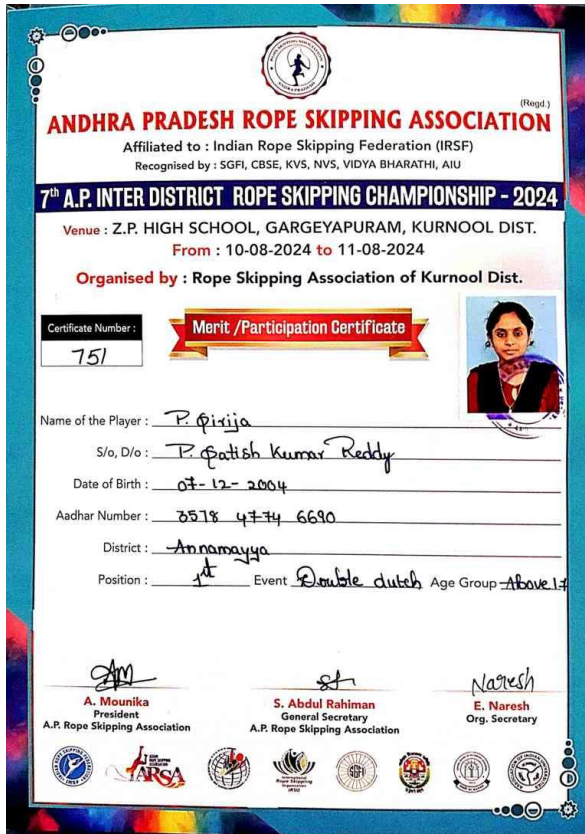 (Regd.)
ANDHRA PRADESH ROPE SKIPPING ASSOCIATION
Affiliated to : Indian Rope Skipping Federation (IRSF)
Recognised by : SGFI, CBSE, KVS, NVS, VIDYA BHARATHI, AIU
7th A.P. INTER DISTRICT ROPE SKIPPING CHAMPIONSHIP - 2024
Venue : Z.P. HIGH SCHOOL, GARGEYAPURAM, KURNOOL DIST.
From : 10-08-2024 to 11-08-2024
Organised by : Rope Skipping Association of Kurnool Dist.
Certificate Number :
751
Merit /Participation Certificate
Name of the Player : P. Girija
S/o, D/o : P. Satish Kumar Reddy
Date of Birth : 07-12-2004
Aadhar Number : 3578 4774 6690
District : Annamayya
Position : 1st Event Double dutch Age Group Above 17
Naresh
A. Mounika
President
A.P. Rope Skipping Association
S. Abdul Rahiman
General Secretary
A.P. Rope Skipping Association
E. Naresh
Org. Secretary
ARSA
International
Rope Skipping
Organisation
IRSO
SGFI